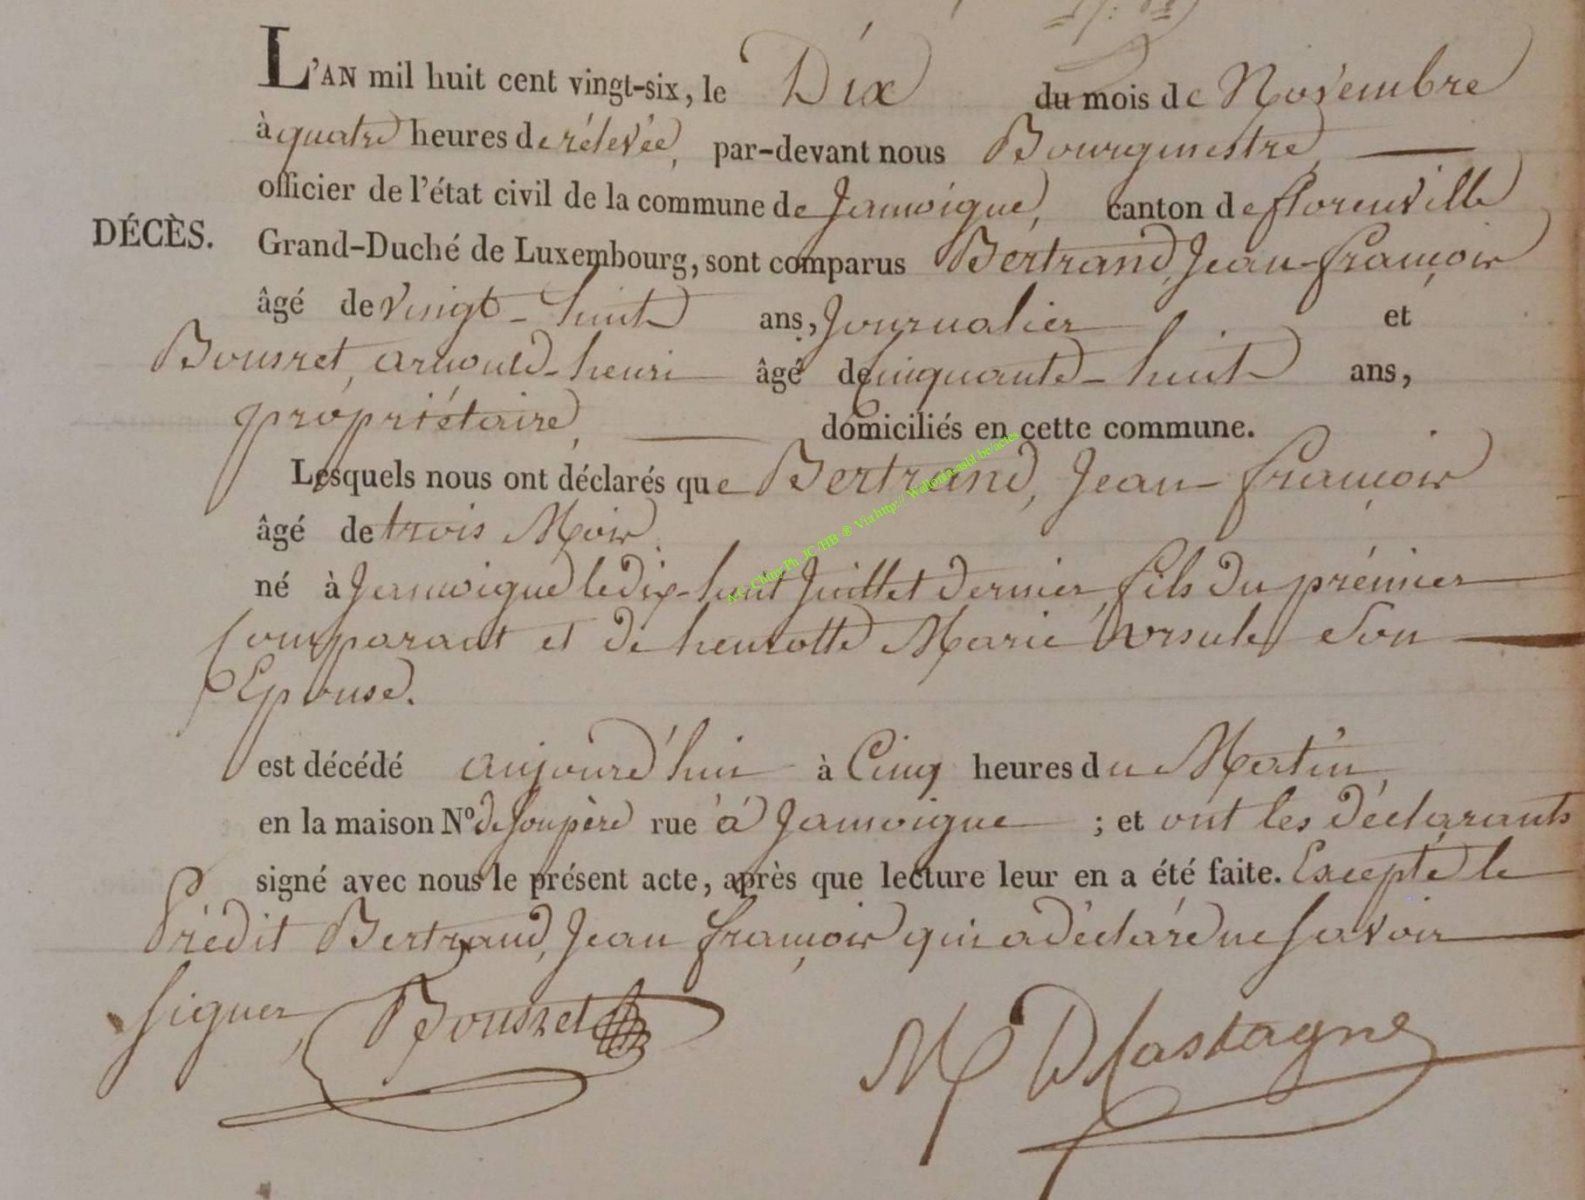 L'AN mil huit cent vingt-six, le Dix du mois de Novembre
à quatre heures de rélevée, par-devant nous Bourgmestre,
officier de l'état civil de la commune de Jamoigne, canton de florenville
DÉCÈS.
Grand-Duché de Luxembourg, sont comparus Bertrand, Jean-françois
âgé de Vingt-huit ans, Journalier et
Housset, arnould-henri âgé de Cinquante-huit ans,
propriétaire, domiciliés en cette commune.
Lesquels nous ont déclarés que Bertrand, Jean-françois
âgé de trois Mois
né à Jamoigne le dix-huit Juillet dernier, fils du prémier
Comparant et de henrotte Marie Ursule Son
Epouse.
est décédé aujourd'hui à Cinq heures du Matin,
en la maison N° de son père rue à Jamoigne ; et ont les déclarants
signé avec nous le présent acte, après que lecture leur en a été faite. Excepté le
Prédit Bertrand, Jean françois qui a déclaré ne Savoir
Signer,
M D Lastagne